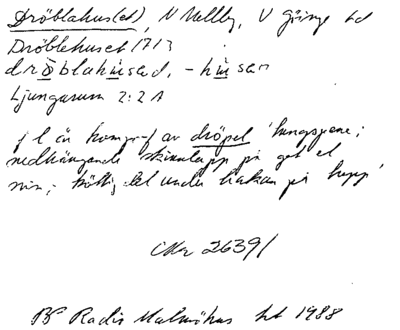 Dröblahus(et), N Mellby, V Göinge hd
Dröblehuset 1717
dröblahúsad, -húsan
Ljungarum 2:21
f l är komp-f av dröpel 'tungspene;
nedhängande skinnlapp på get el
svin; köttig del under hakan på tupp'
2639/
BP Radio Malmöhus ht 1988